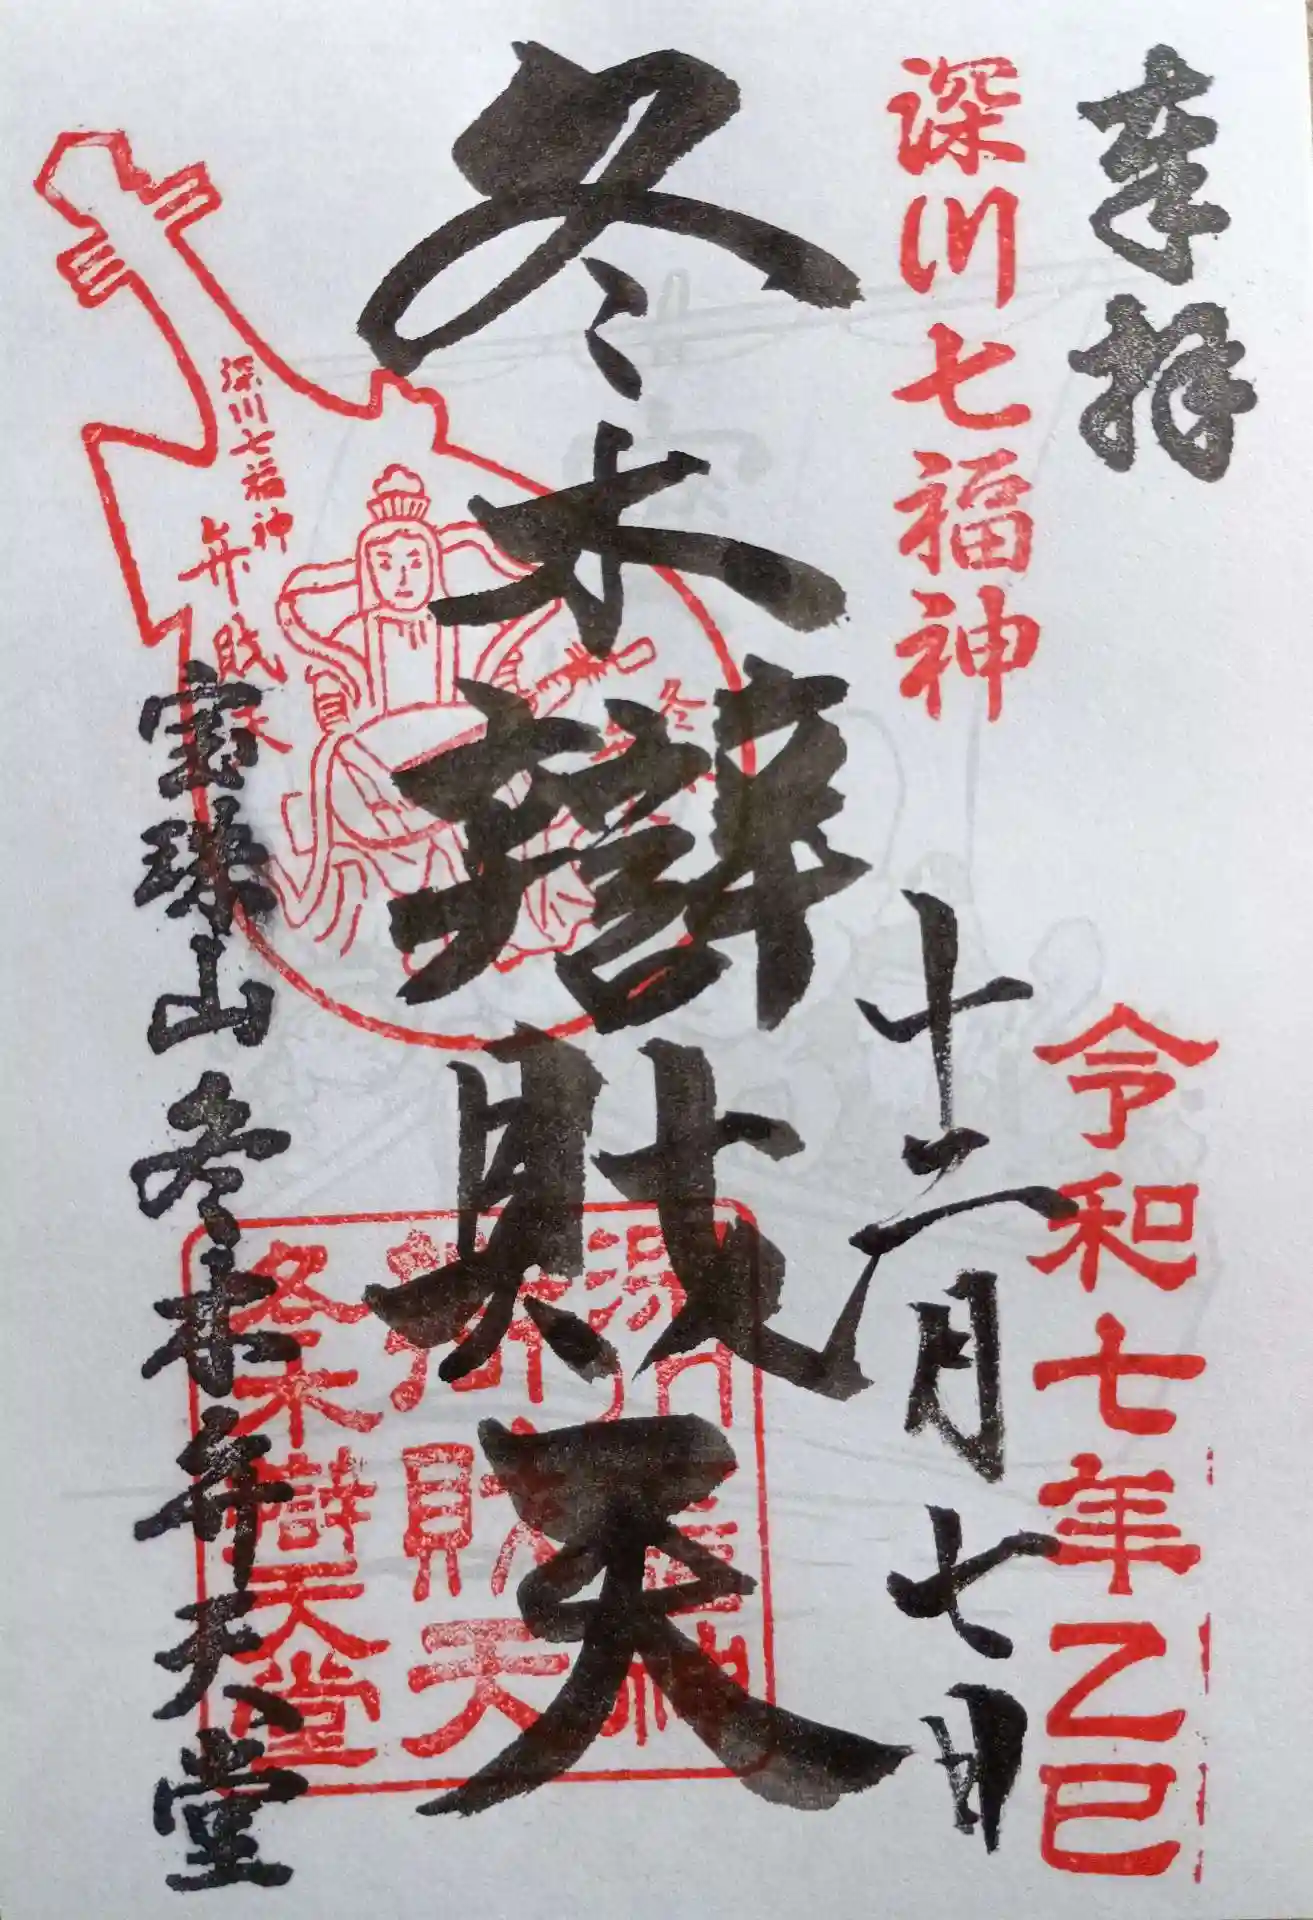 奉拝
深川七福神
令和七年乙巳
十二月七日
冬木辯財天
深川七福神
弁財天
冬
辯財天
冬木辯天堂
宝珠山 冬木弁天堂